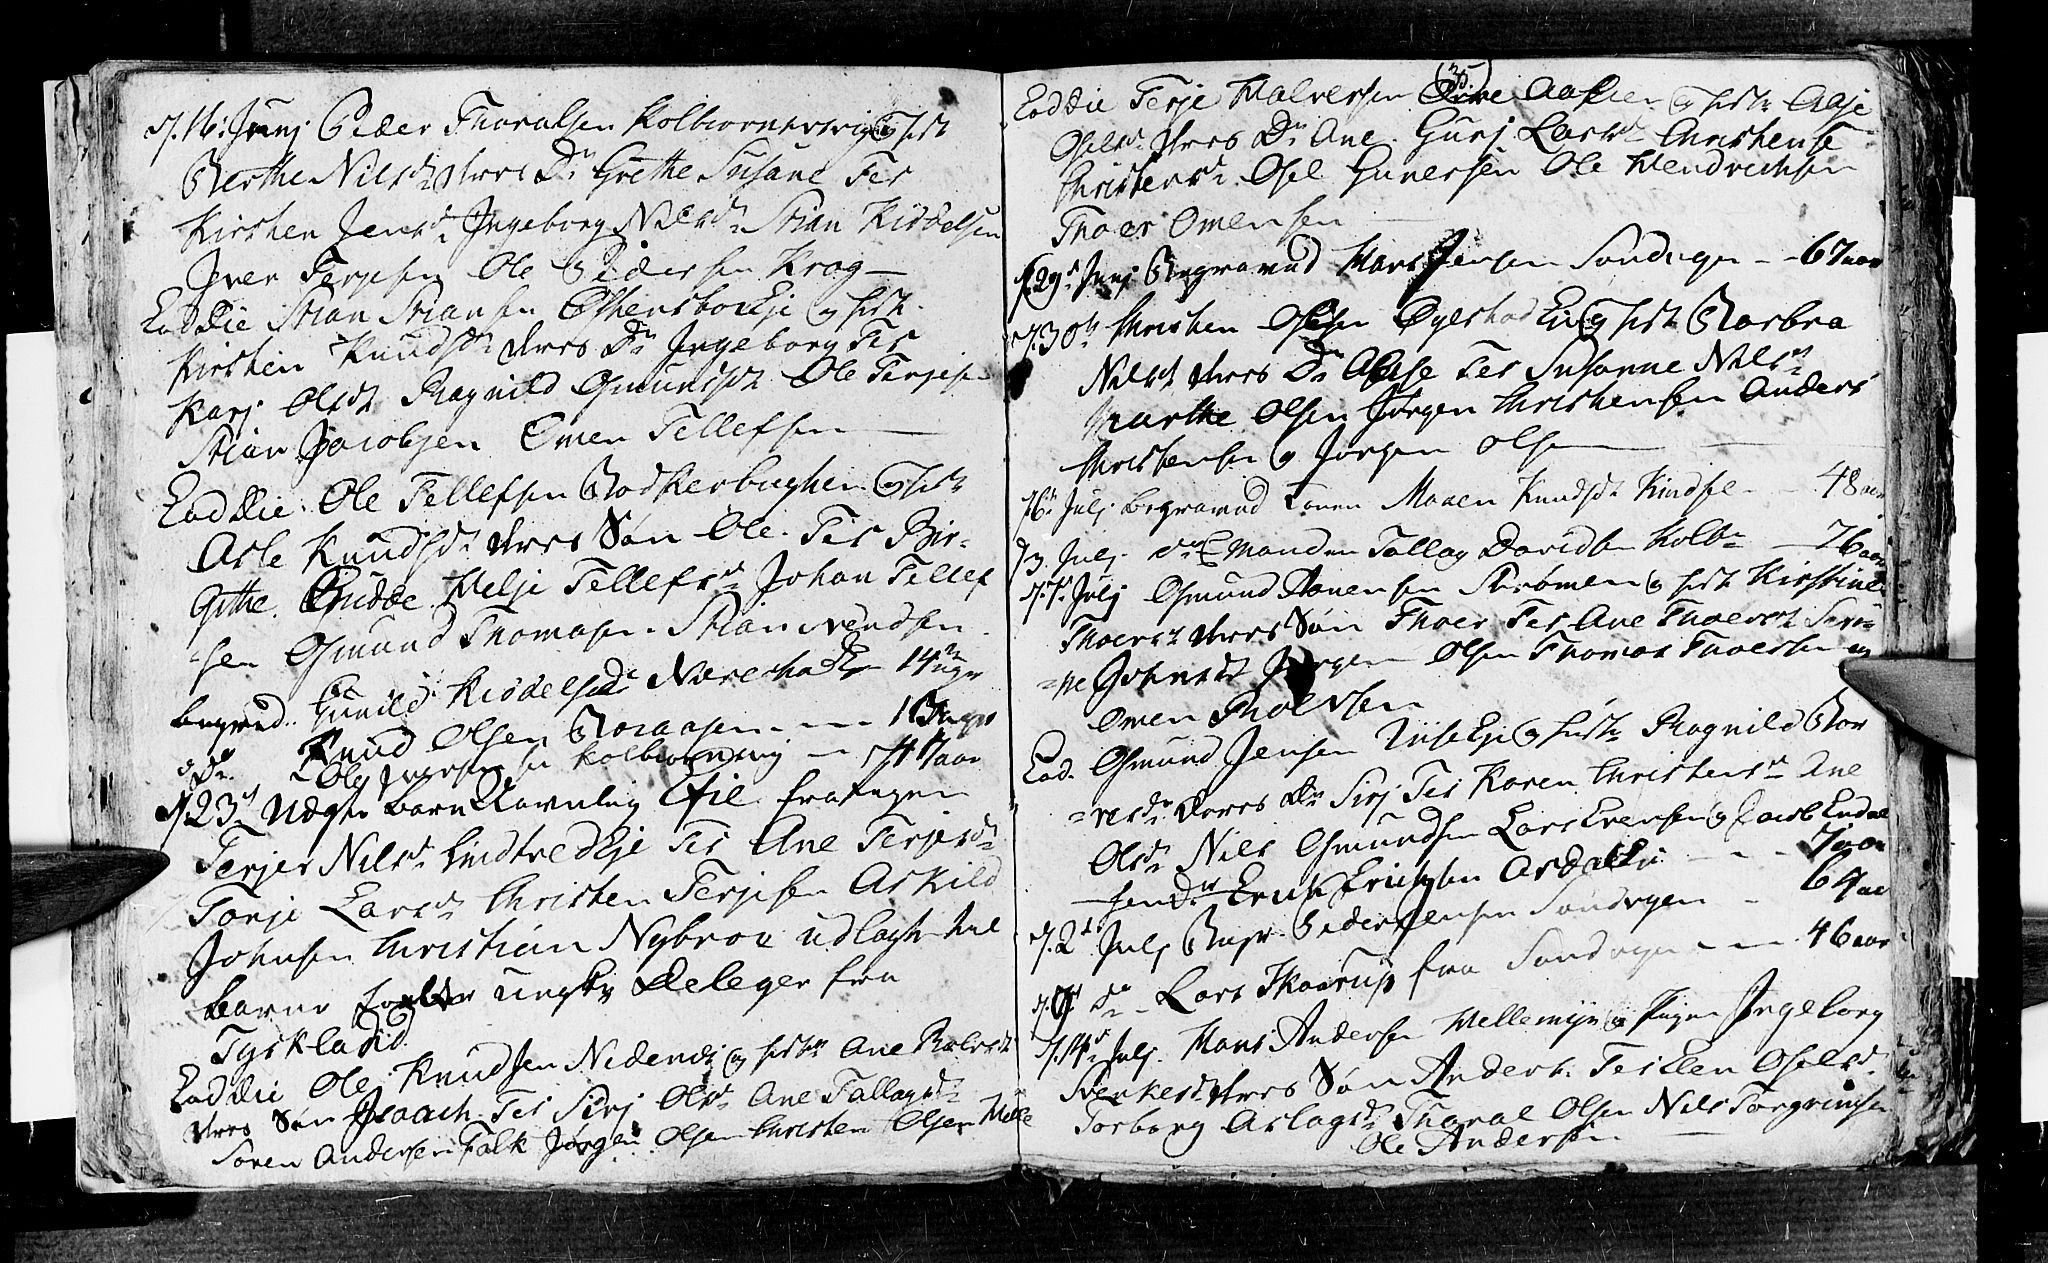 d. 16: Junj Peder Thoralsen Kolbiornsvig og hust
Berthe Nilsd deres D: Grethe Susane Tes
Kirsten Jensd: Ingeborg Nilsd: Stian Kiddelsen
Iver Terjesen Ole Pedersen Krog —
Eod Die Stian Stiansen Østensboe Eje og hust:
Kirsten Knudsd: deres D: Ingeborg Tes
Karj Olsd: Ragnild Osmundsd: Ole Terjesen
Stian Jacobsen Omen Tellefsen —
Eod Die: Ole Tellefsen og hust:
Asle Knudsd: deres Søn Ole. Tes Bir-
gitte. Gudde. Helje Tellefsd: Johan Tellef
-sen Osmund Thomasen Stian Svendsen
begrvd. Gunild Kiddelsd: Nærestad 14 uger
do. Knud Olsen Boraasen — — uger
Ole Iversen Kolbiornsvig — 74 aar
d. 23 Nægte Barn Navnlig Ole fra pigen
Terjer Nilsd: Lindtved Eje Tes Ane Terjesd:
Torje Larsd: Christen Terjesen Askild
Johnsen Christian Nybroe udlagt til
barne fader ungk: Deleger fra
Tyskland
Eod Die Ole Knudsen Nedenes og hustr Ane Roløvsd:
deres Søn Isaach. Tes Sirj Olsd: Ane Tallagsd:
Søren Andersen Falk Jørgen Olsen Christen Olsen Helle
35
Eod Die Terje Halversen Aasen og hust: Aasje
Oselsd: deres D: Ane. Gurj Larsd: Christense
Christensd: Osel Gunersen Ole Hendrichsen
Thoer Omensen —
d. 29: Junj Begraved Hans Jensen Sandvigen — 67 aar
d. 30te Christen Olsen Øyestad Eie og hust: Barbra
Nilsd: deres D: Aase Tes Susanne Nilsd:
Marthe Olsen Jørgen Christensen Anders
Christensen og Jørgen Olsen — —
d. 6te Julj begraved Konen Maren Knudsd: Kindsel — 48 aar
d. 3. Julj do Manden Tallag Davidsen Kolb: — 76 aar
d. 7: Julj Osmund Avensen Strømmen og hust: Kirstine
Thoersd: deres Søn Thoer Tes Ane Thoersd: Seri-
-ne Johnsd: Jørgen Olsen Thomas Thoersen og
Omen Thoersen
Eod. Osmund Jensen Eje og hustr: Ragnild Bor
-resd: deres D: Sirj Tes Karen Christensd: Ane
Olsd: Nils Osmundsen Lars Evensen og Jacob Endal
-sen D: Erich Erichsen Asdal Ei — — 7 aar
d. 2: Julj Begr. Peder Jensen Sandvigen — 64 aar
do — Lars Skaarup fra Sandvigen — — 46 aar
d. 14: Julj. Hans Andersen Hellemyr og Pigen Ingeborg
Sverkesd: deres Søn Anders. Tes Elen Oselsd:
Torborg Aslagsd: Tharal Olsen Nils Torgrimsen
Ole Andersen —